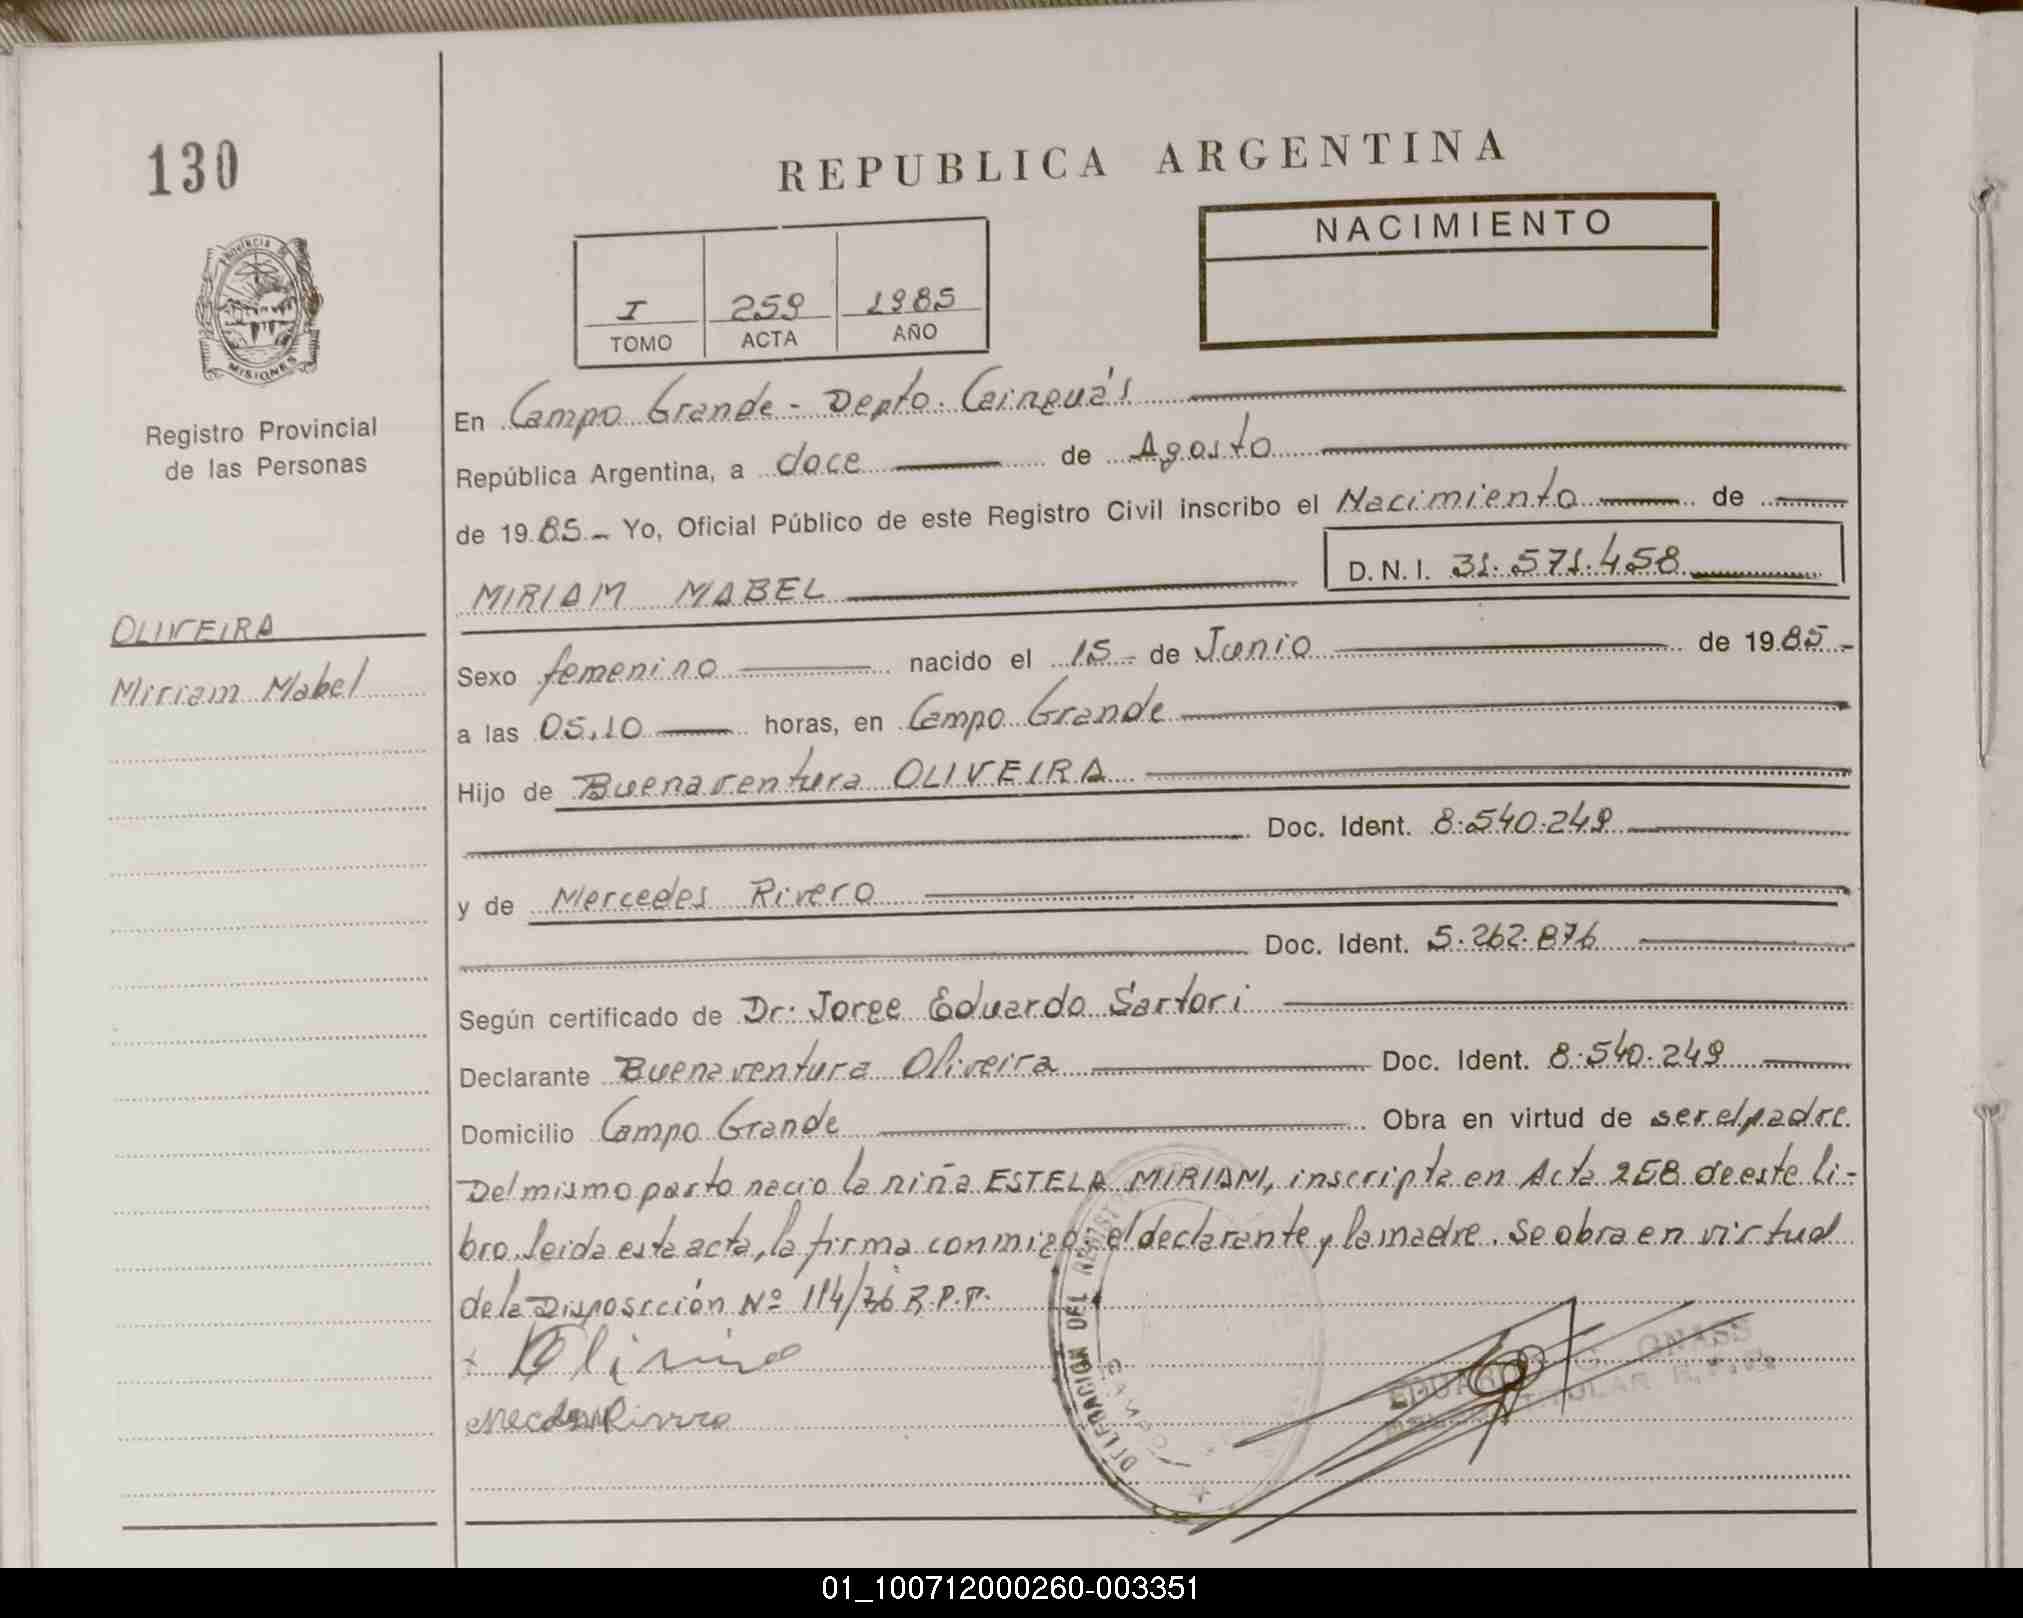 130
REPUBLICA ARGENTINA
NACIMIENTO
Provincia de
MISIONES
I 259 1985
TOMO ACTA AÑO
Registro Provincial
de las Personas
OLIVEIRA
Miriam Mabel
En Campo Grande - Depto. Cainguás
República Argentina, a doce de Agosto
de 1985 - Yo, Oficial Público de este Registro Civil inscribo el Nacimiento de
D.N.I. 31.571.458
MIRIAM MABEL
Sexo femenino nacido el 15 - de Junio de 1985.-
a las 05,10 horas, en Campo Grande
Hijo de Buenaventura OLIVEIRA
Doc. Ident. 8.540.249
y de Mercedes Rivero
Doc. Ident. 5.262.876
Según certificado de Dr. Jorge Eduardo Sartori
Declarante Buenaventura Oliveira Doc. Ident. 8.540.249
Domicilio Campo Grande Obra en virtud de ser el padre.
Del mismo parto nacio la niña ESTELA MIRIAM, inscripta en Acta 258 de este li-
bro. leida esta acta, la firma conmigo, el declarante y la madre. Se obra en virtud
de la Disposición Nº 114/76 R.P.P.
DELEGACION DEL REGIST
CAMPO
EDUARDO
TITULAR
01_100712000260-003351